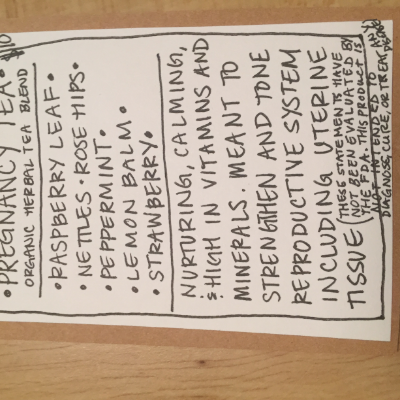 • PREGNANCY TEA • $10
ORGANIC HERBAL TEA BLEND
• RASPBERRY LEAF •
• NETTLES • ROSE HIPS •
• PEPPERMINT •
• LEMON BALM •
• STRAWBERRY •
NURTURING, CALMING,
& HIGH IN VITAMINS AND
MINERALS. MEANT TO
STRENGTHEN AND TONE
REPRODUCTIVE SYSTEM
INCLUDING UTERINE
TISSUE (THESE STATEMENTS HAVE
NOT BEEN EVALUATED BY
THE FDA. THIS PRODUCT IS
NOT INTENDED TO
DIAGNOSE, CURE, OR TREAT ANY